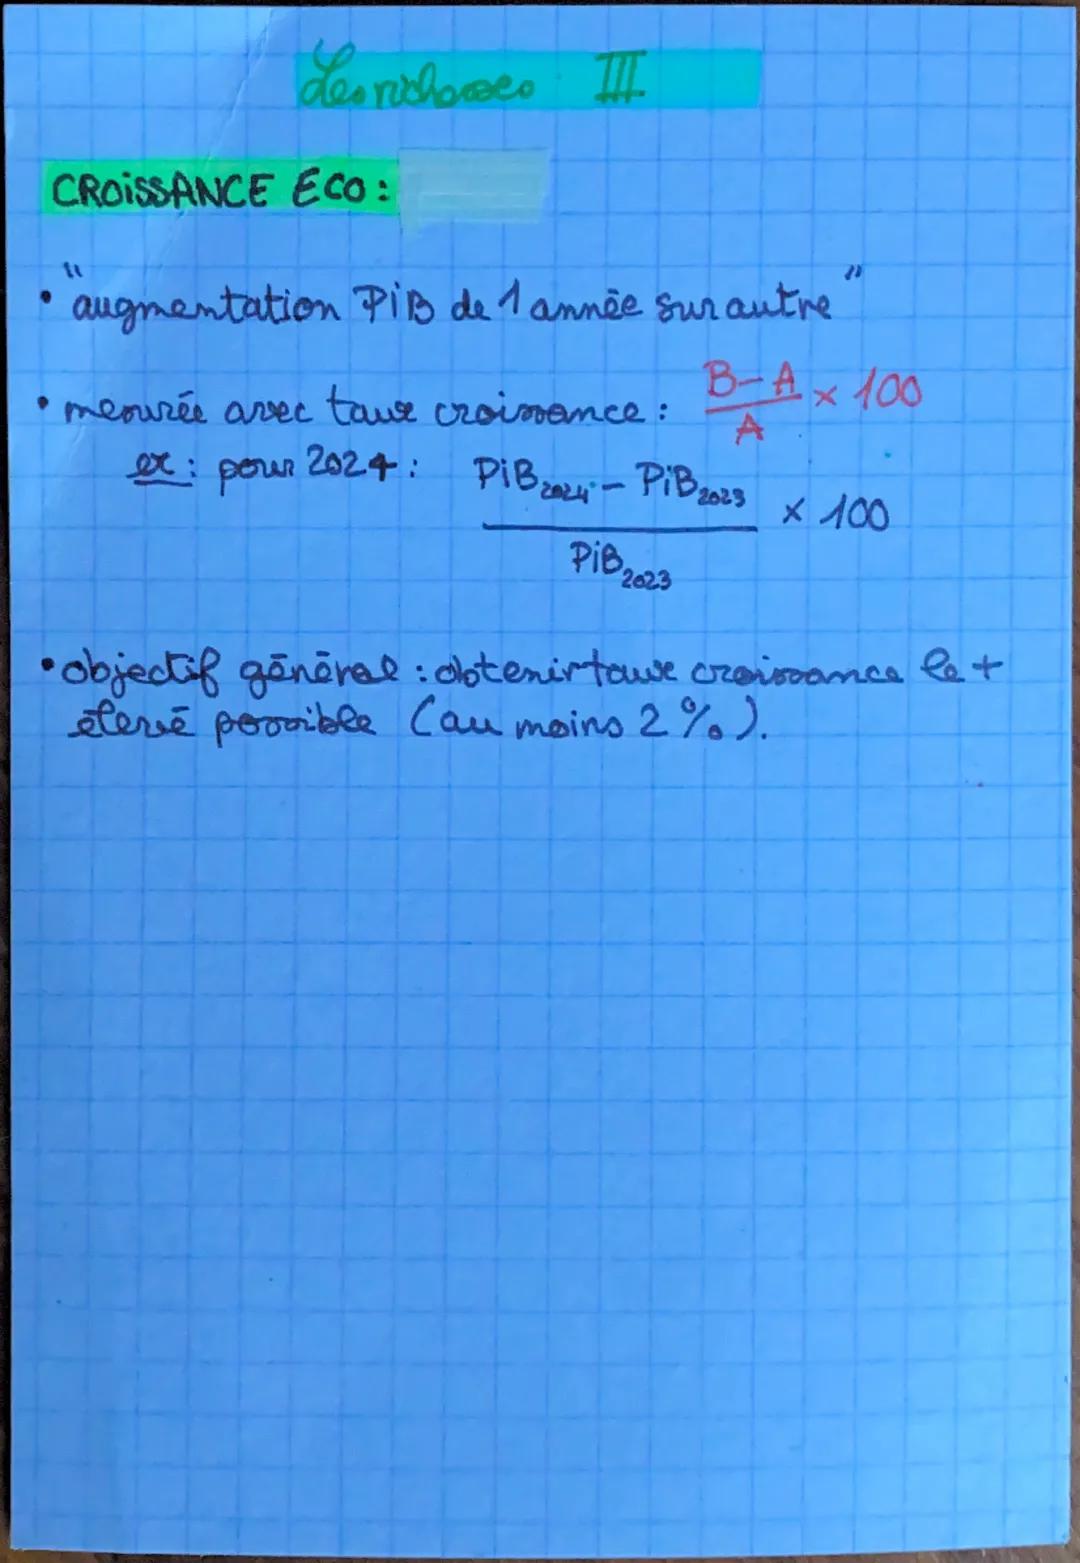 Les richesses III
CROISSANCE ECO :
• "augmentation PiB de 1 année sur autre"
• mesurée avec taux croissance : B-A/A × 100
ex : pour 2024 : PiB2024 - PiB2023 / PiB2023 × 100
• objectif général : obtenir taux croissance le +
élevé possible (au moins 2 %).